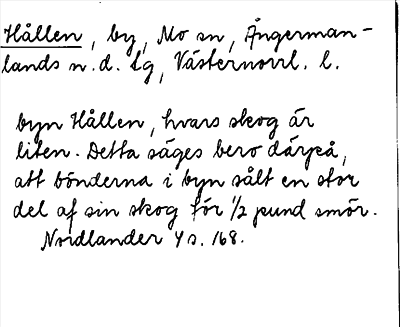 Hållen, by, Mo sn, Ångerman-
lands n. d. lg, Västernorrl. l.
byn Hållen, hvars skog är
liten. Detta säges bero därpå,
att bönderna i byn sålt en stor
del af sin skog för 1/2 pund smör.
Nordlander 4 s. 168.